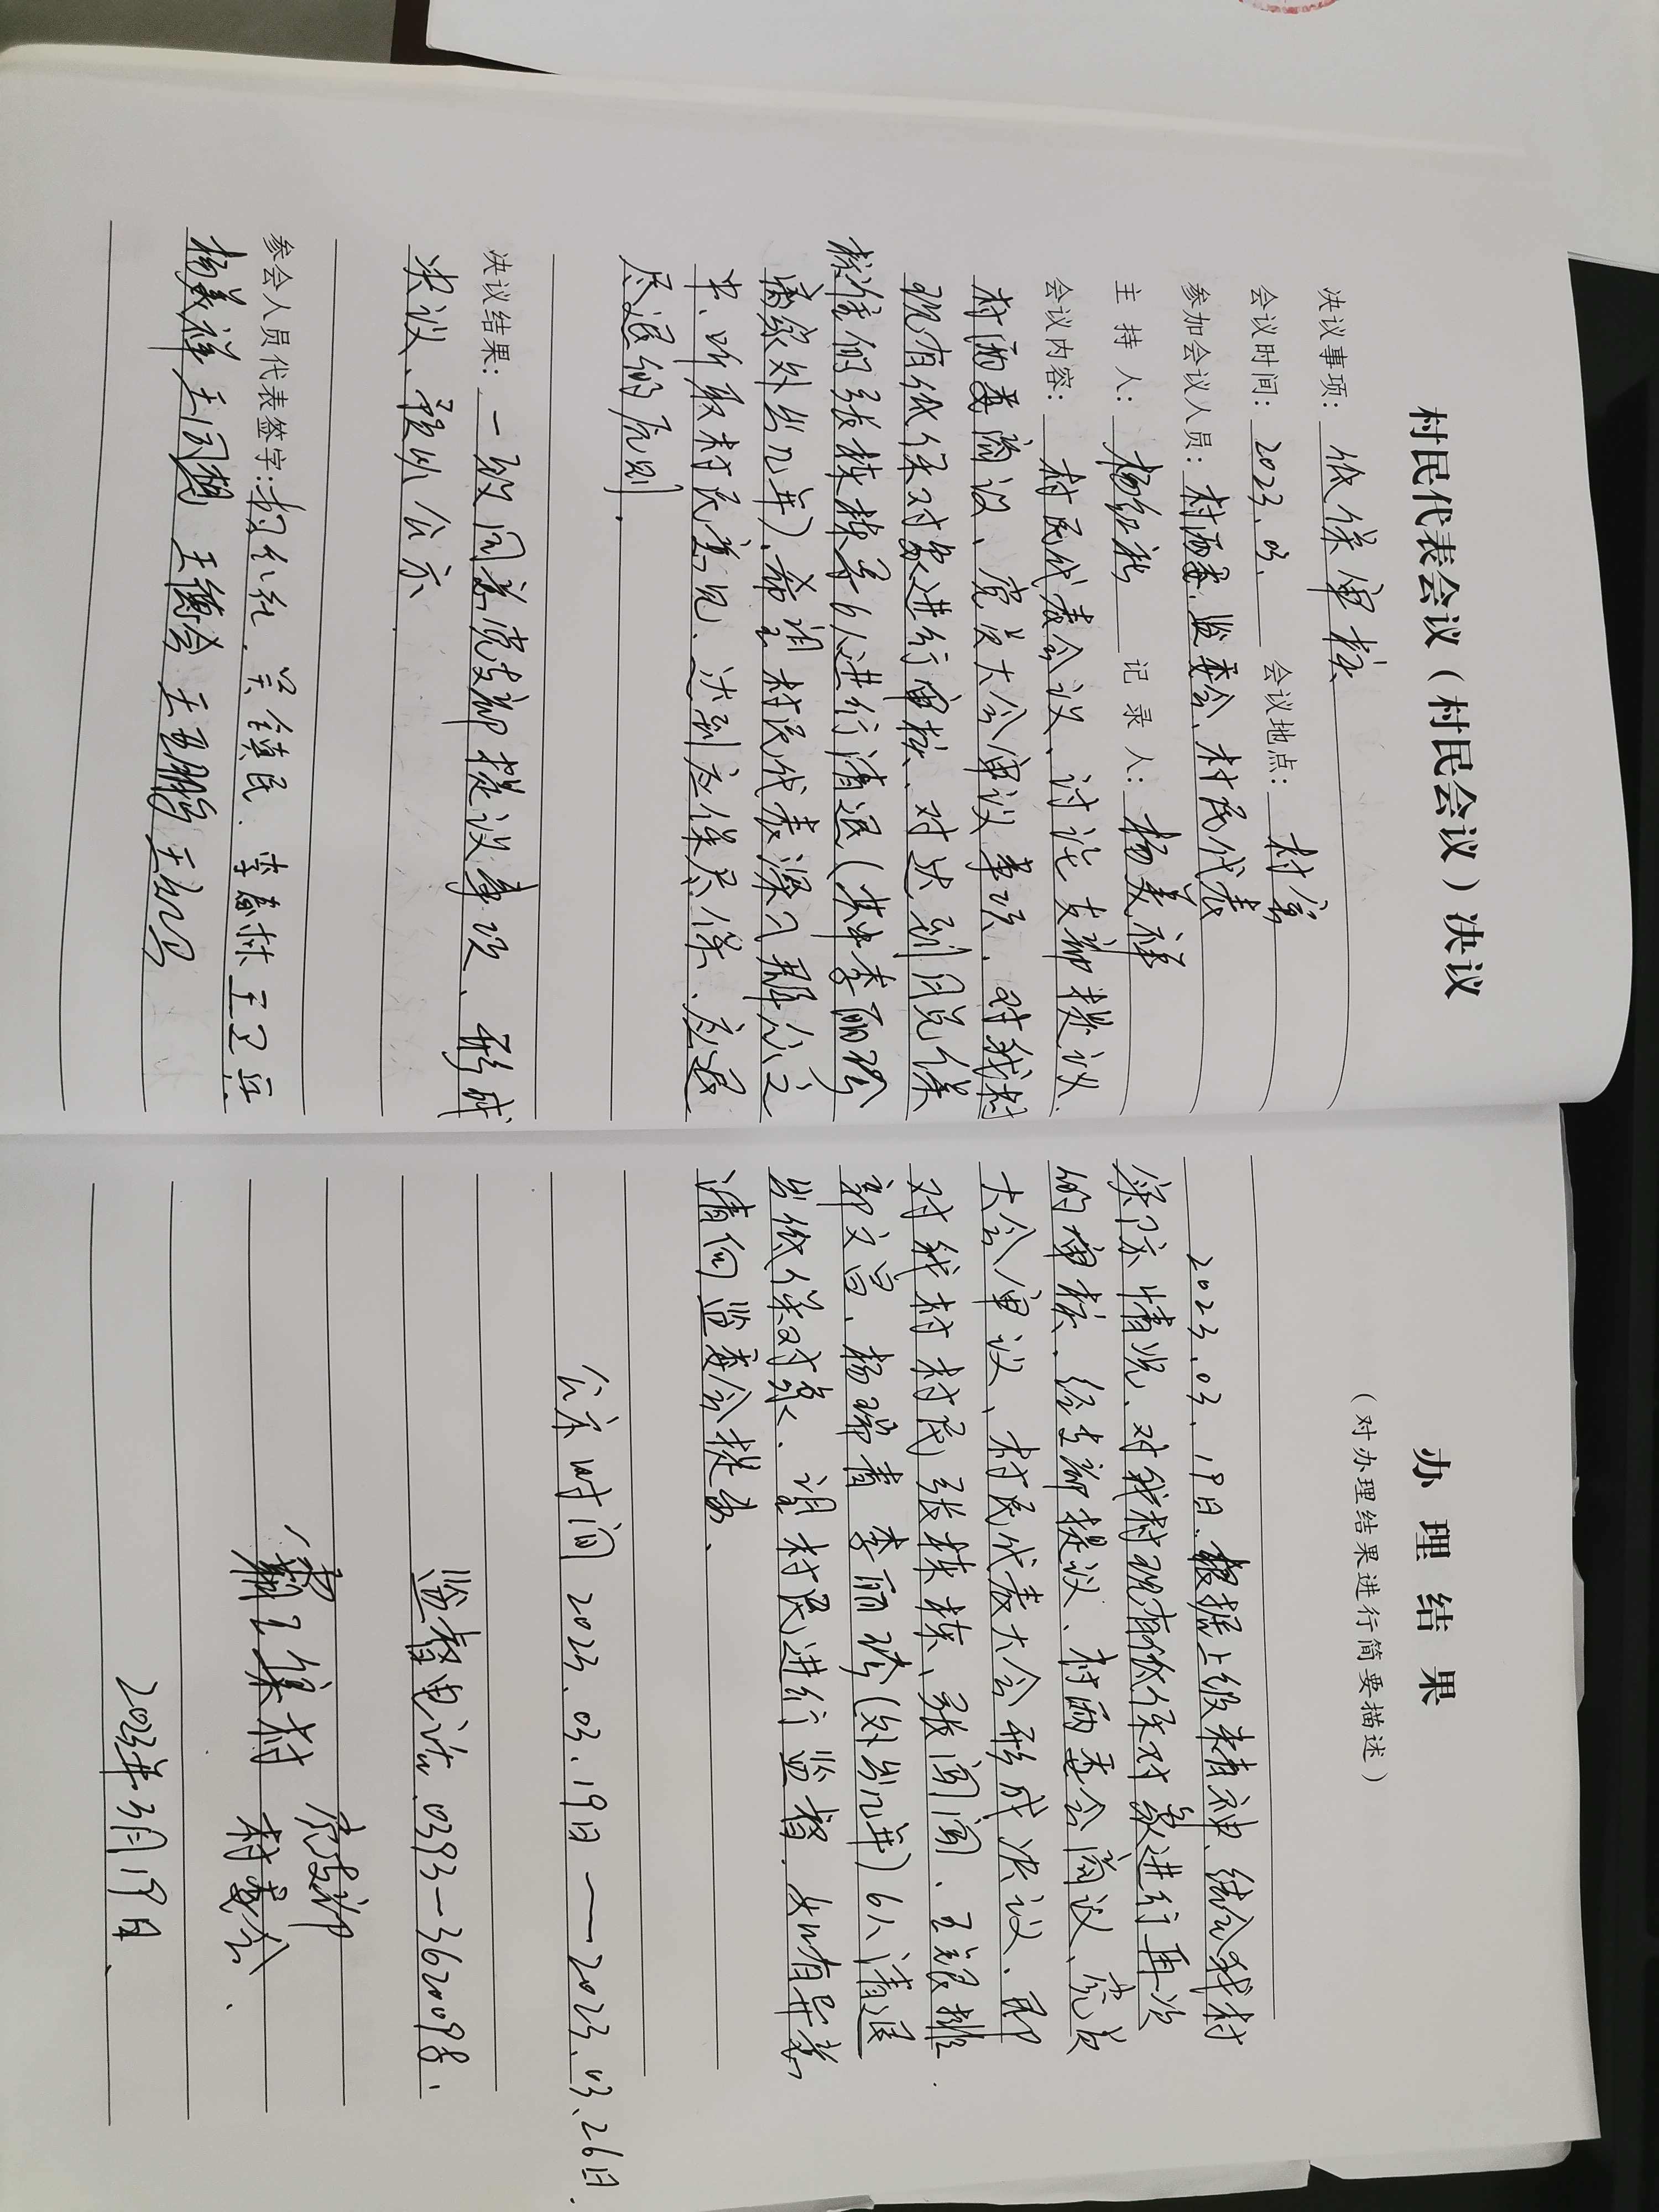 村民代表会议（村民会议）决议
决议事项：低保审核
会议时间：2023.03. 会议地点：村室
参加会议人员：村两委、监委会、村民代表
主持人：杨红社 记录人：杨美祥
会议内容：村民代表会议、讨论支部提议、
村两委商议、党员大会审议事项、对我村
现有低保对象进行审核、对达到脱保
标准的张栋栋等6人进行清退（其中李丽玲
离家外出几年）、希望村民代表深入群众之
中、听取村民意见、达到应保尽保、应退
尽退的原则.
决议结果：一致同意党支部提议事项、形成
决议、预以公示.
参会人员代表签字：杨红社、吴镇民、李春林 王卫兵
杨美祥 王同想 王德会 王亚鹏 王红卫
办理结果
（对办理结果进行简要描述）
2023.03.19日、根据上级精神、结合我村
实际情况、对我村现有低保对象进行再次
的审核、经支部提议、村两委会商议、党员
大会审议、村民代表大会形成决议、即
对我村村民张栋栋、张闯闯、王银排、
郭文昌、杨瑞青 李丽玲（外出几年）6人清退
出低保对象、望村民进行监督、如有异意
请向监委会提出、
公示时间 2023.03.19日——2023.03.26日.
监督电话、0393—3620098.
霸王集村 党支部
村委会.
2023年3月19日、